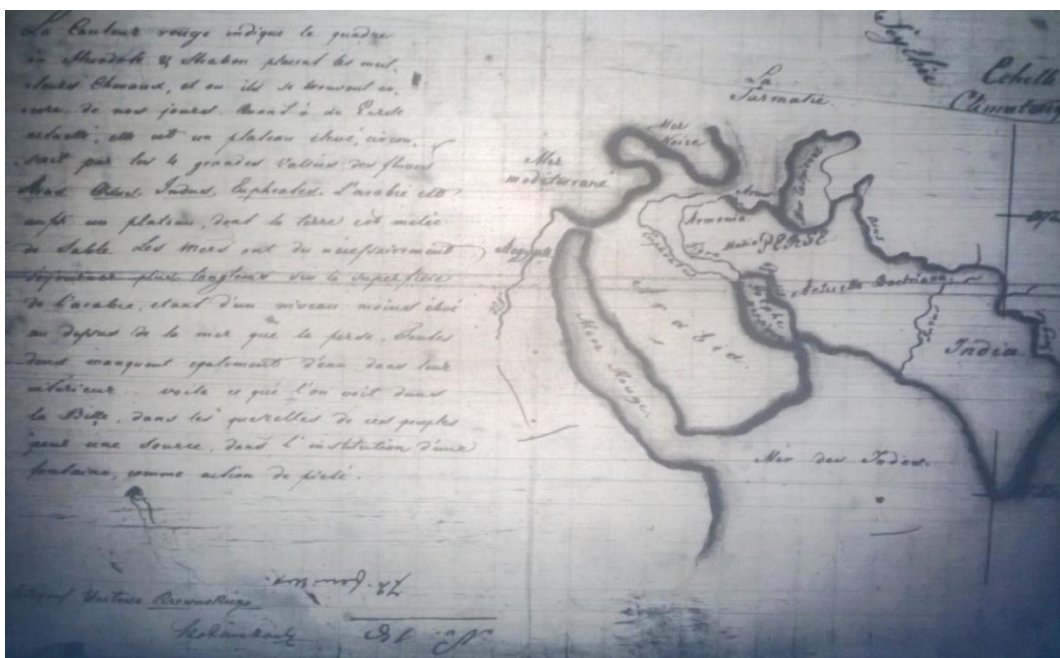 La Couleur rouge indique le quadre
où Herodote & Strabon placent les meil-
leurs Chevaux, et ou ils se trouvent en-
core de nos jours. Quant à la Perse
actuelle, elle est un plateau élevé, circon-
scrit par les 4 grandes Vallées des fleuves
Arax Indus, Euphrates. L'arabie est
aussi un plateau, dont la terre est melée
de Sable. Les mers ont du necessairement
sejourner plus longtems sur la superficie
de l'arabie, etant d'un niveau moins élevé
au dessus de la mer que la perse. Toutes
deux manquent egalement d'eau dans leur
interieur. voila ce que l'on voit dans
la Bible, dans les querelles de ces peuples
pour une source, dans l'institution d'une
fontaine, comme action de pieté.
Scythie
Echelle
La
Sarmatie
Mer
Noire
Mer
mediterrané
Mer Caspienne
Arax
Armenia
Euphrates
Tigre
Media PERSE
Oxus
Aegypte
Nil
Arabia
Mer Rouge
Golphe
Persique
Bactriana
Indus
India
Mer des Indes.
No